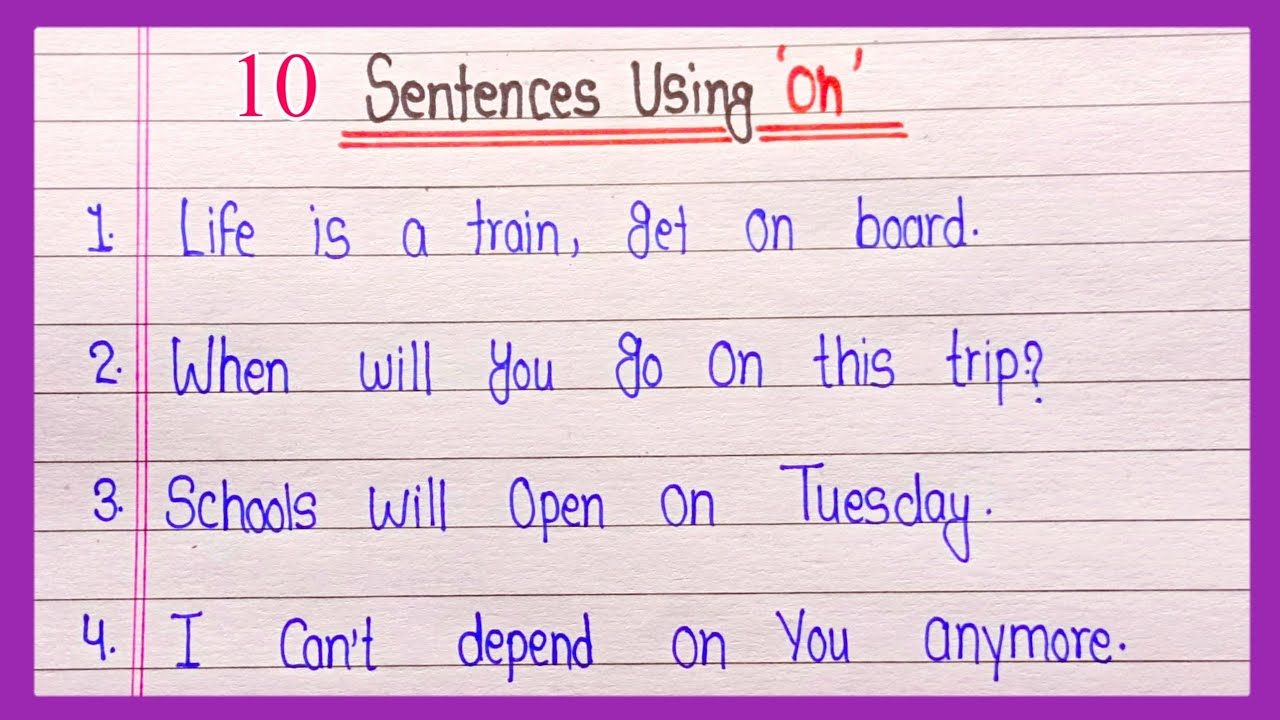 10 Sentences Using 'on'
1. Life is a train, get on board.
2. When will you go on this trip?
3. Schools will open on Tuesday.
4. I can't depend on you anymore.